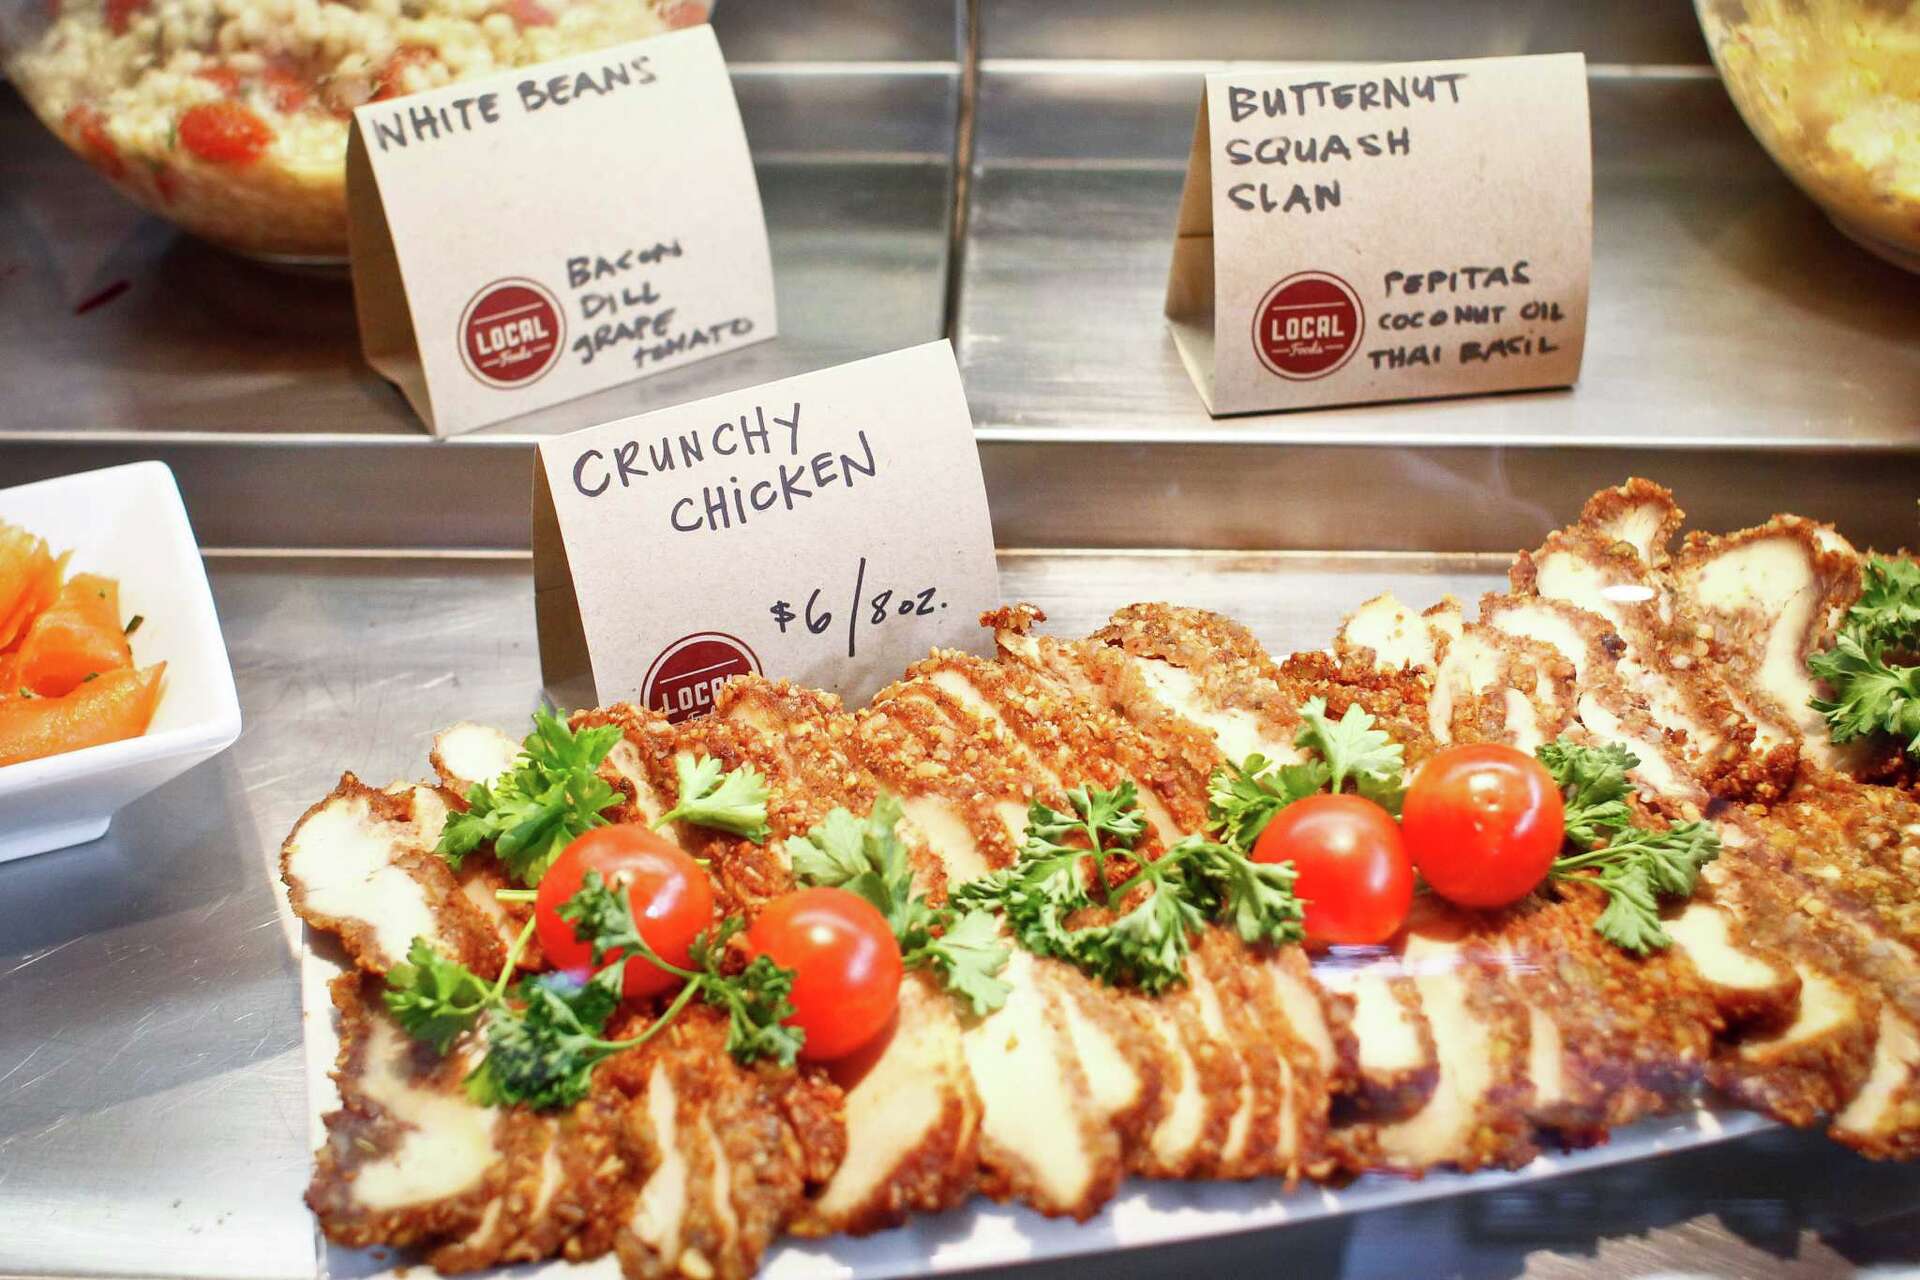 WHITE BEANS
BACON
DILL
GRAPE
TOMATO
LOCAL
Foods
BUTTERNUT
SQUASH
SLAN
PEPITAS
COCONUT OIL
THAI BASIL
LOCAL
Foods
CRUNCHY
CHICKEN
$6/8oz.
LOCAL
Foods